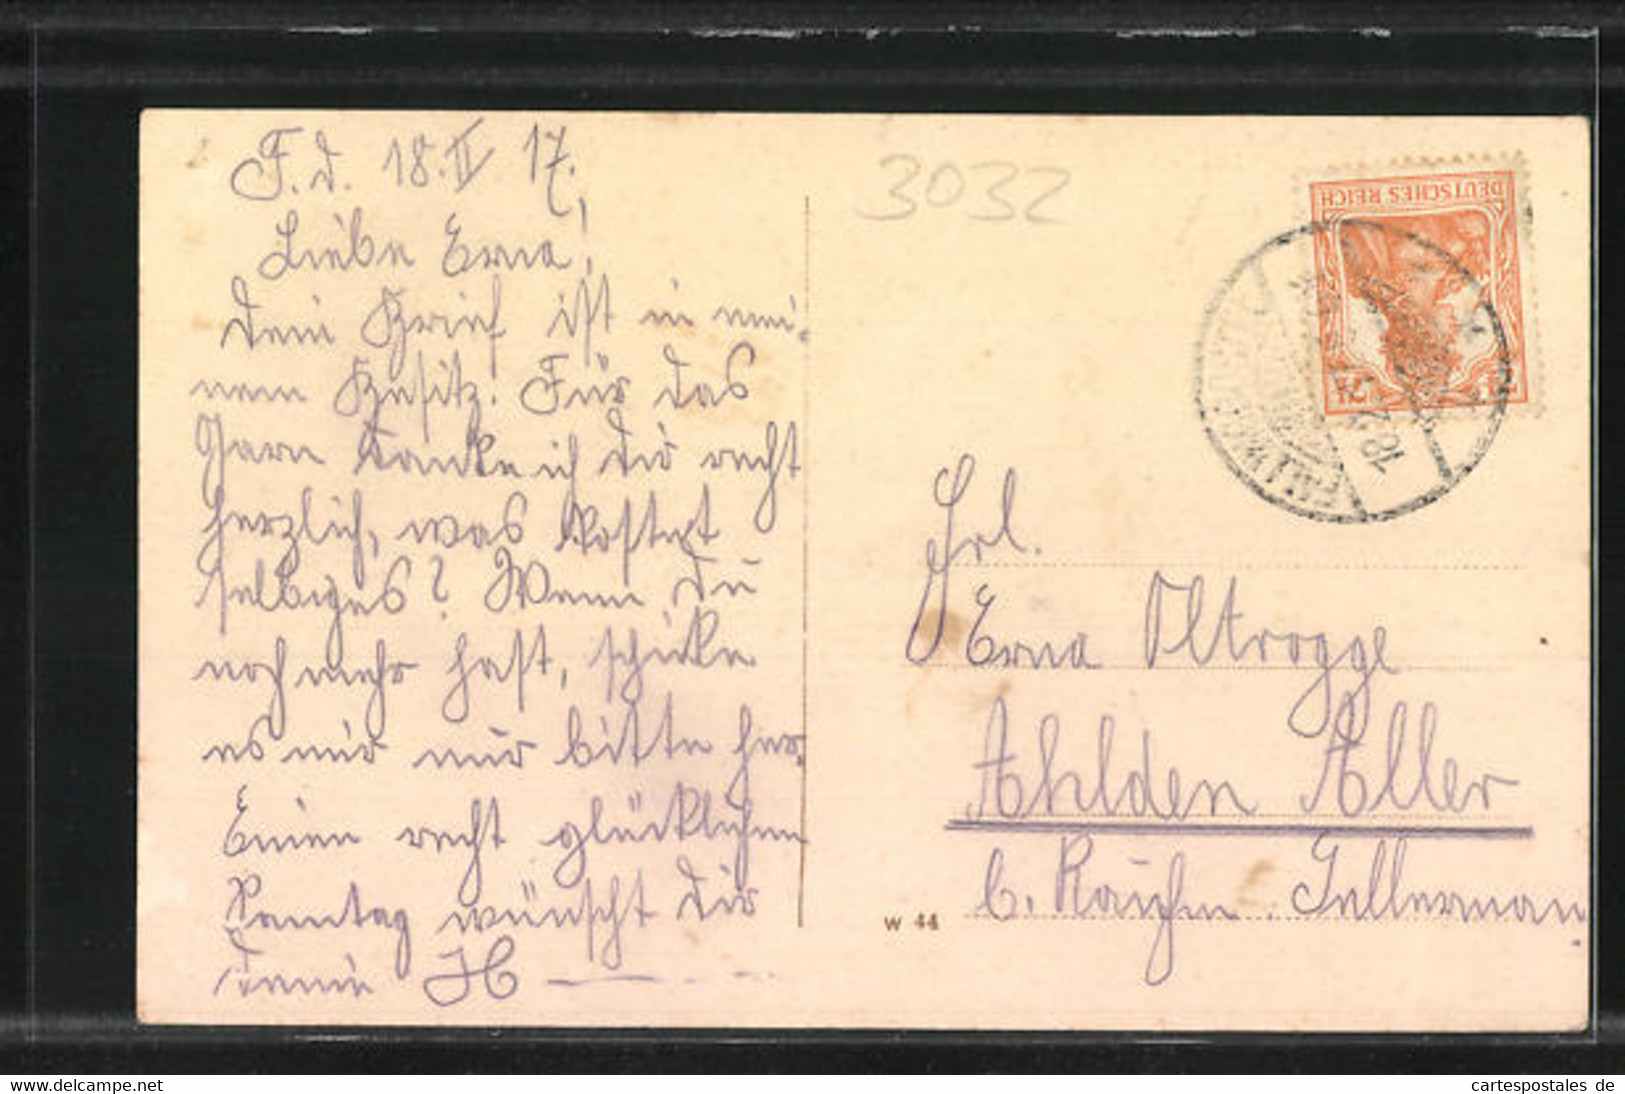 F. d. 18. II 17.
Liebe Erna!
Dein Brief ist in mei-
nem Besitz. Für das
Garn danke ich Dir recht
herzlich, was kostet
selbiges? Wenn Du
noch mehr hast, schicke
es mir nur bitte her.
Einen recht glücklichen
Sonntag wünscht Dir
Deine H
3032
DEUTSCHES REICH
18.2.17
Frl.
Erna Oltrogge
Ahlden Aller
b. Kaufm. Gellerman
W 44
www.delcampe.net
cartespostales de